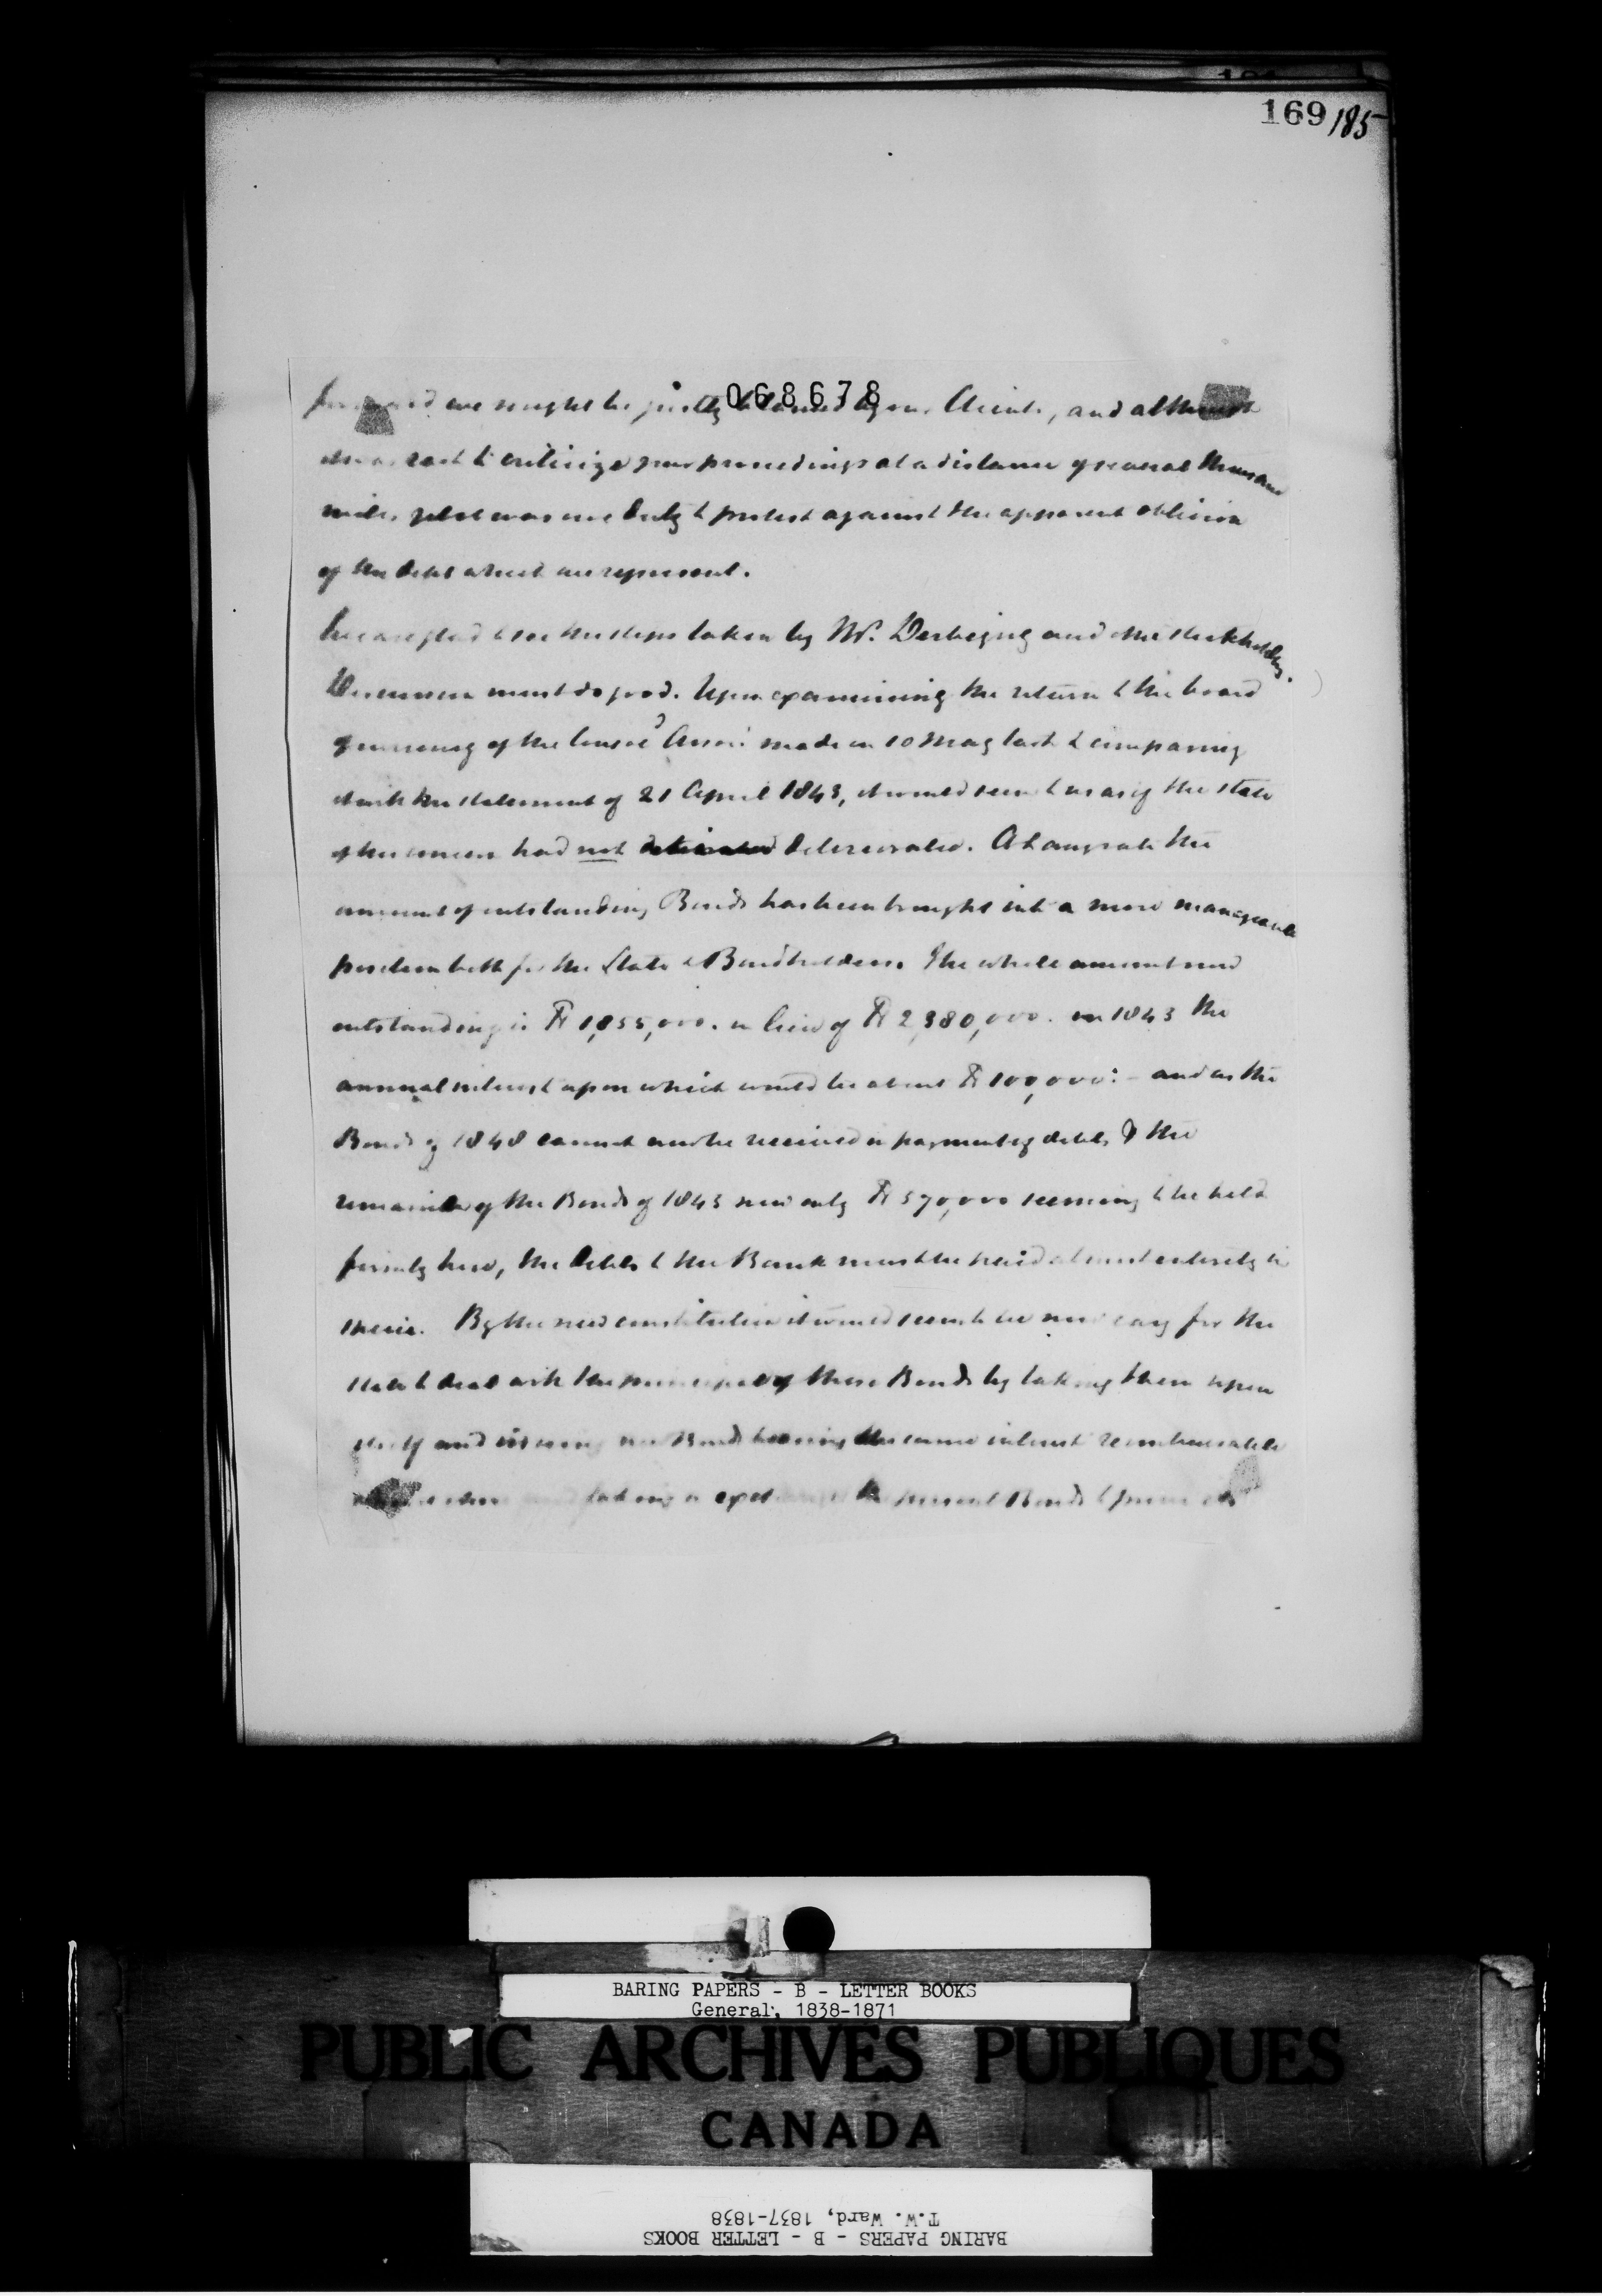 169 185
068678
we might be justly blamed by our Clients, and although
to criticize your proceedings at a distance of several thousand
miles, yet it was our duty to protest against the apparent oblivion
of the debt which we represent.
We are glad to see the steps taken by Mr. Derbigny and other stockholders,
Discussion must do good. Upon examining the return to the board
of currency of the Consold Assn. made on 10 May last & comparing
it with the statement of 21 April 1843, it would seem to us as if the state
of the concern had not deteriorated. At any rate the
amount of outstanding Bonds has been brought into a more manageable
position both for the State & Bondholders. The whole amount now
outstanding is $ 1,855,000. in lieu of $ 2,380,000. in 1843 the
annual interest upon which would be about $ 100,000: - and as the
Bonds of 1848 cannot now be received in payment of debts, & the
remainder of the Bonds of 1843 now only $ 570,000 seeming to be held
firmly here, the debts to the Bank must be paid almost entirely in
specie. By the new constitution it would seem to be now easy for the
State to deal with the principal of these Bonds by taking them upon
itself and issuing new Bonds bearing the same interest reimbursable
taking in the present Bonds
BARING PAPERS - B - LETTER BOOKS
General, 1838-1871
PUBLIC ARCHIVES PUBLIQUES
CANADA
BARING PAPERS - B - LETTER BOOKS
T.W. Ward, 1837-1838